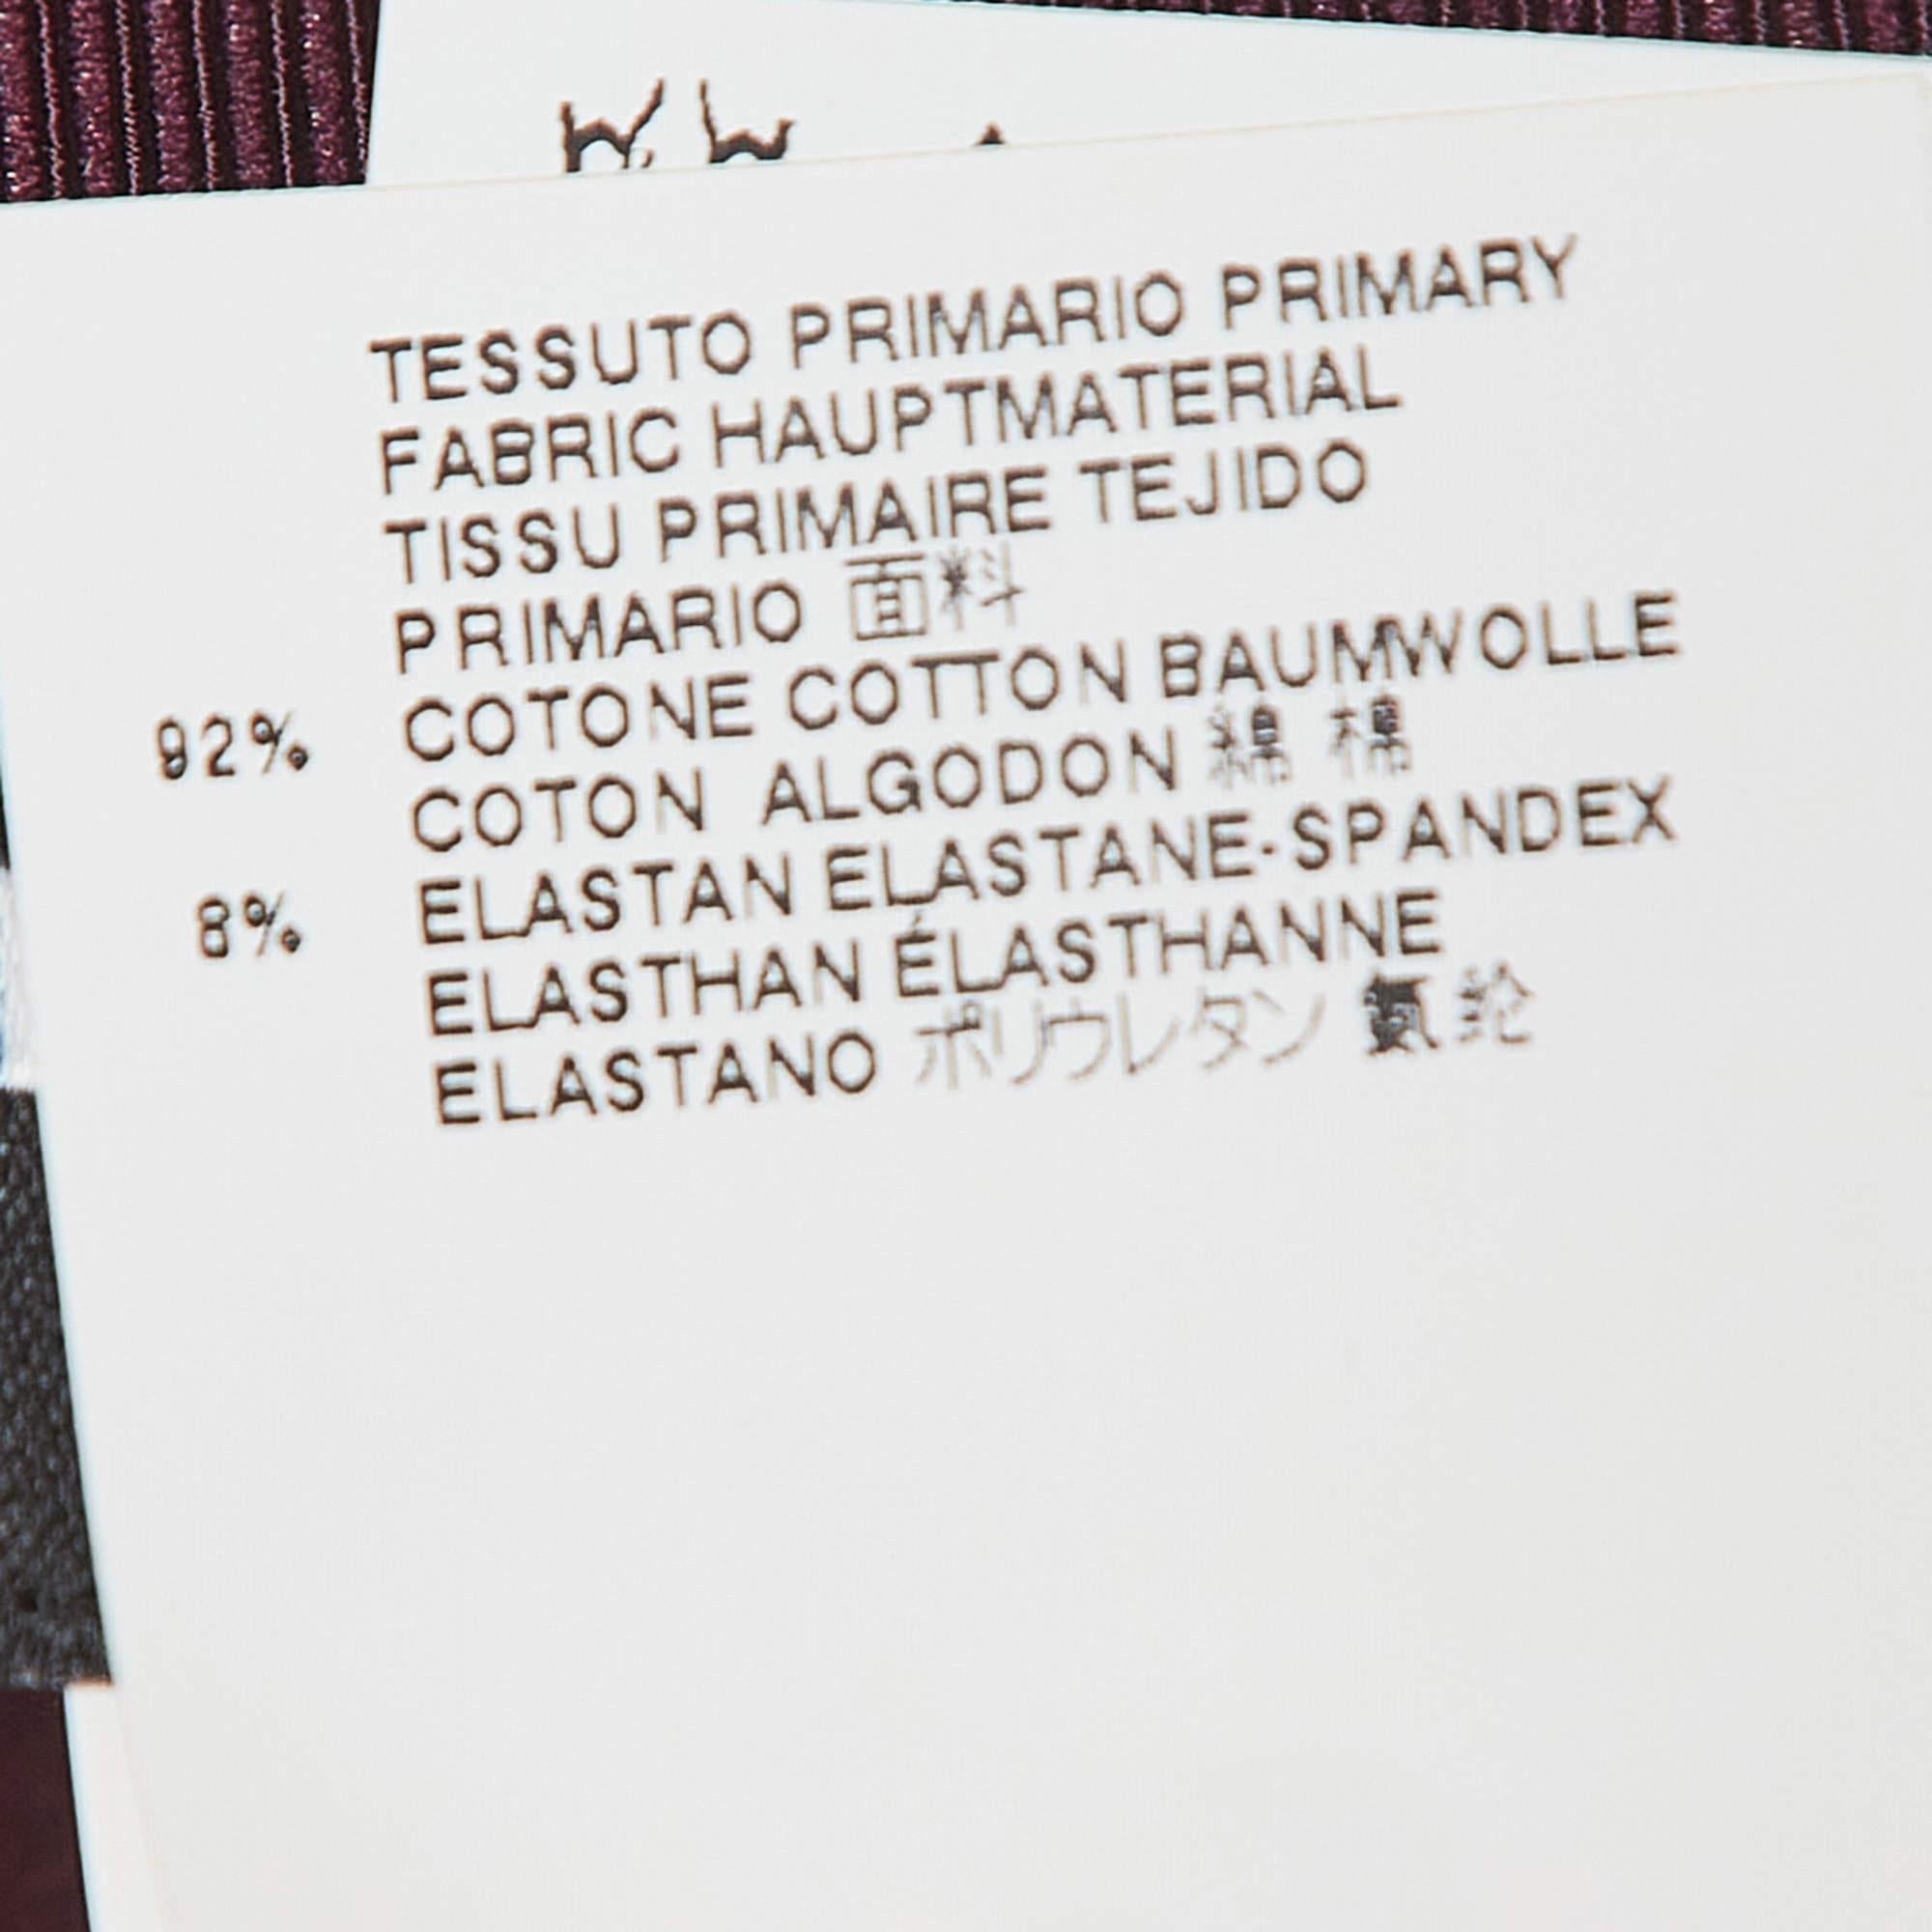 TESSUTO PRIMARIO PRIMARY
FABRIC HAUPTMATERIAL
TISSU PRIMAIRE TEJIDO
PRIMARIO 面料
92% COTONE COTTON BAUMWOLLE
COTON ALGODON 綿 棉
8% ELASTAN ELASTANE-SPANDEX
ELASTHAN ÉLASTHANNE
ELASTANO ポリウレタン 氨纶